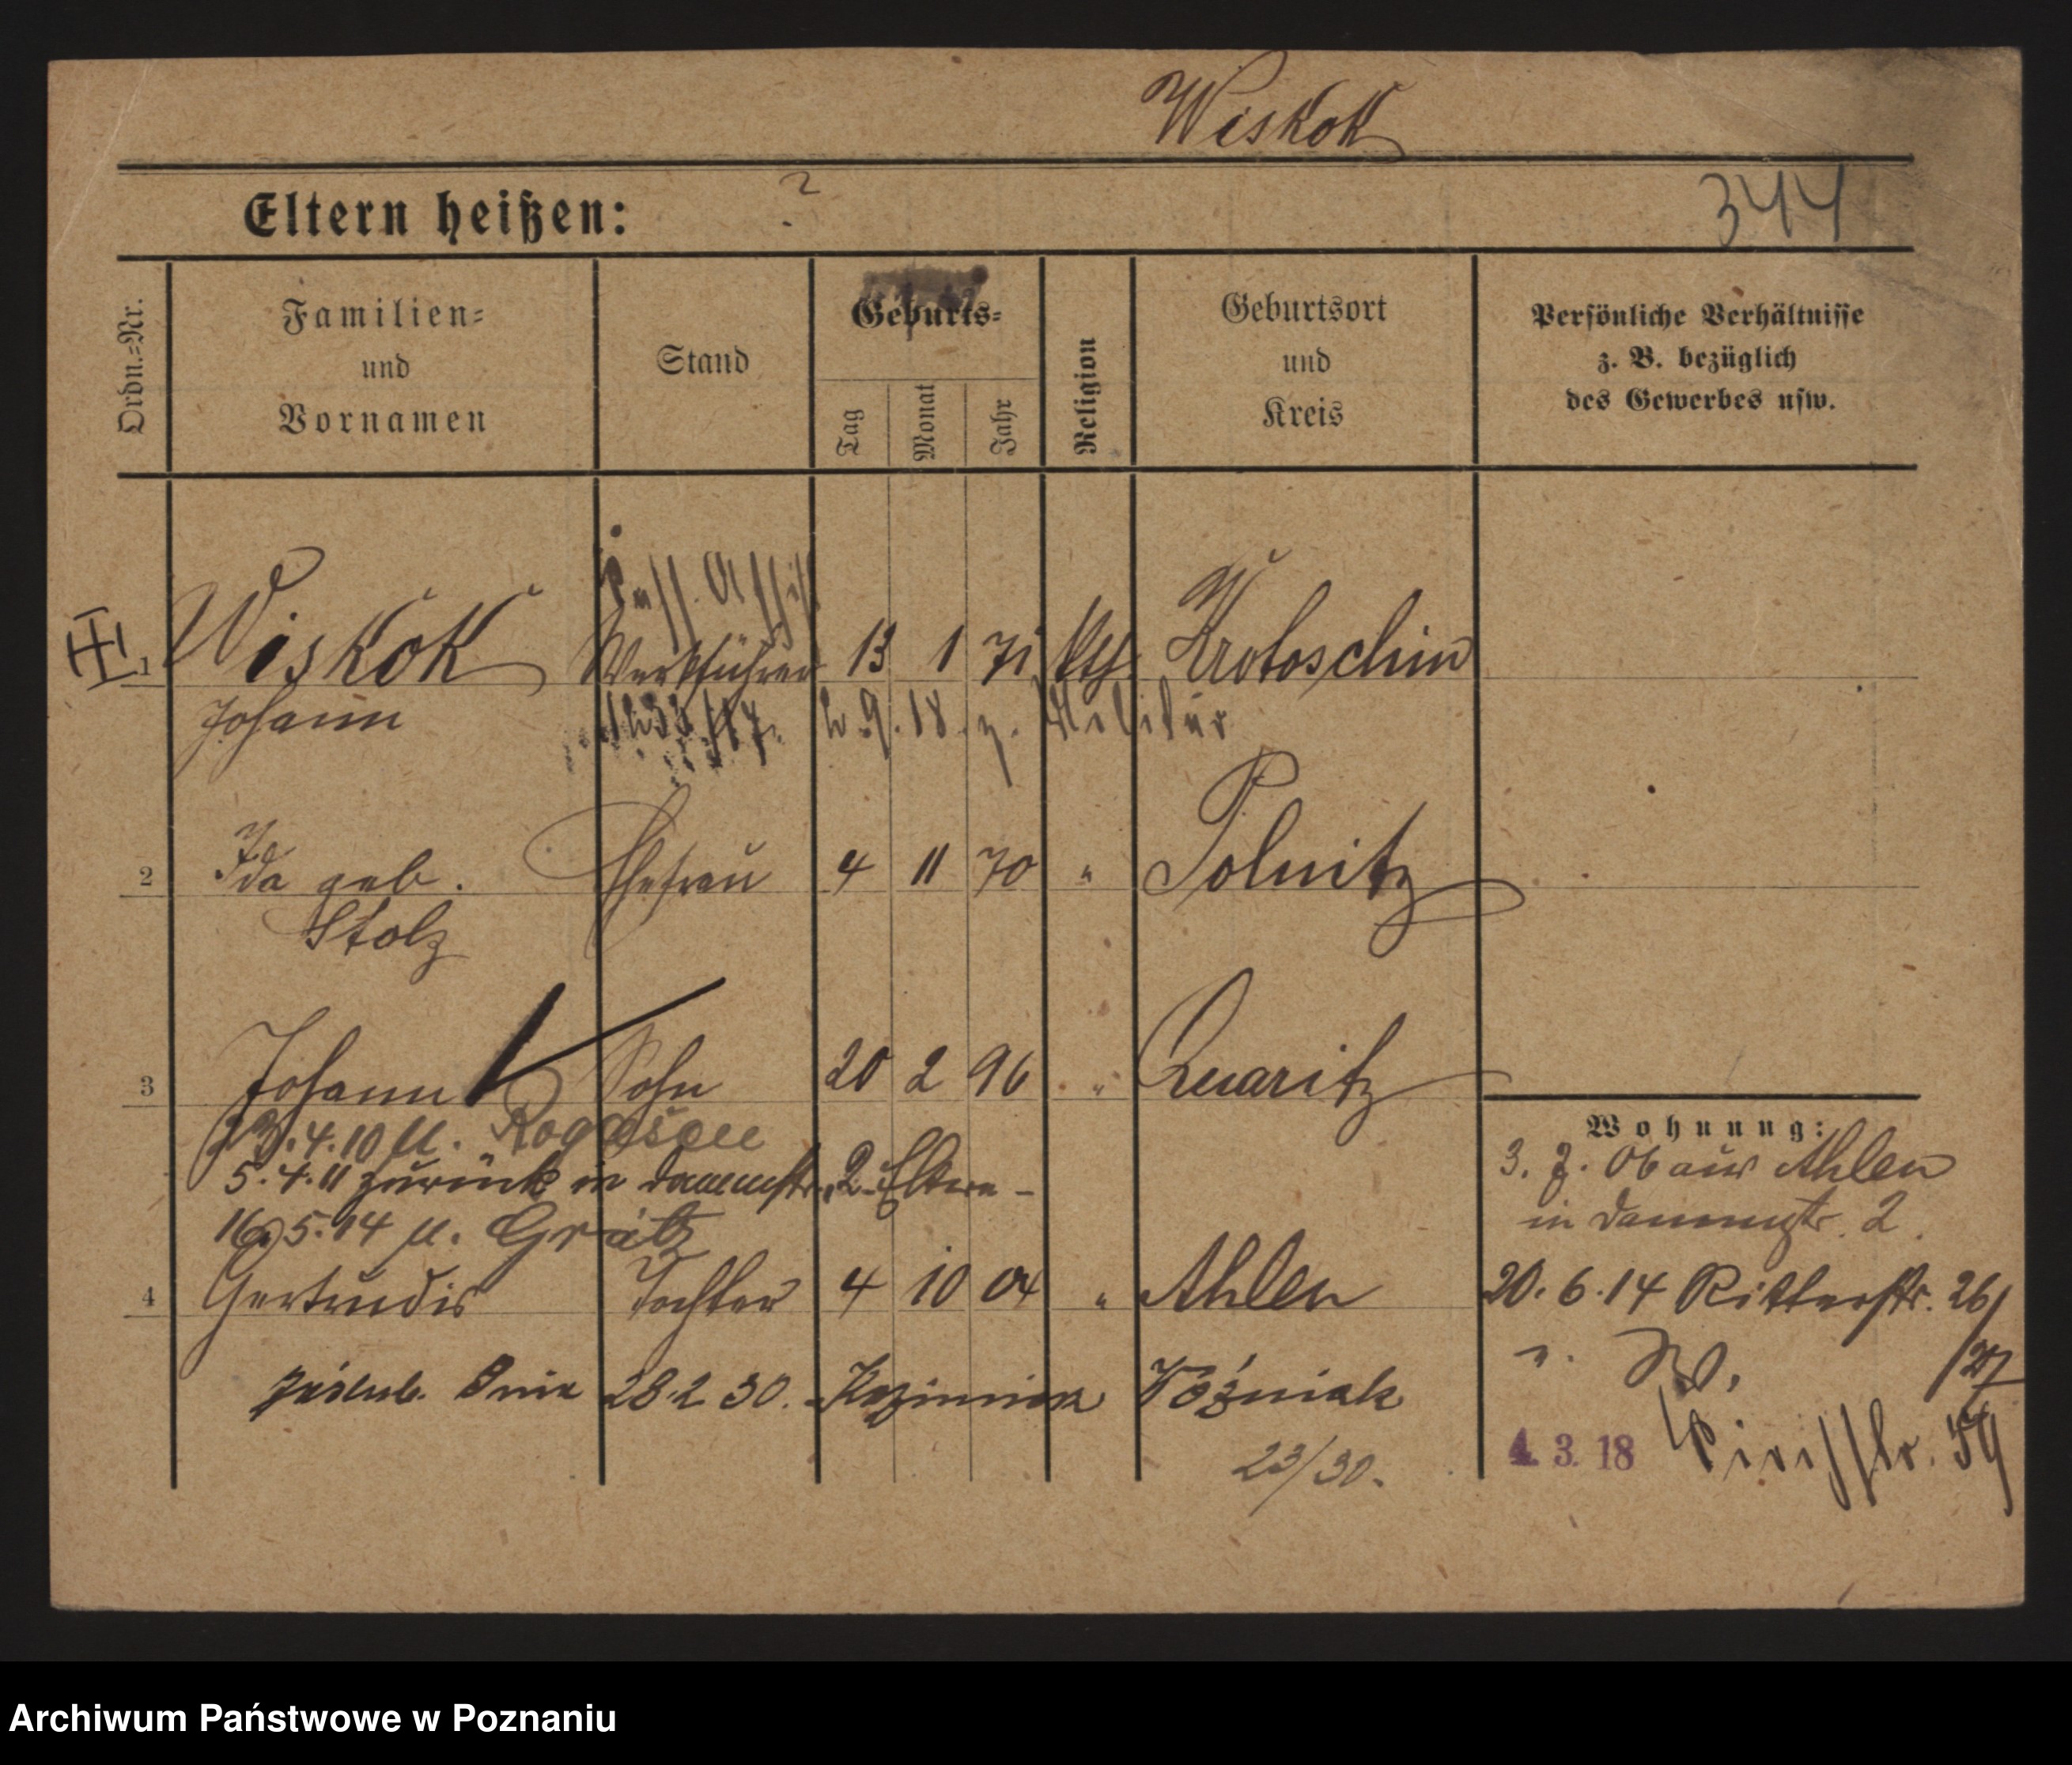 Wiskok
Eltern heißen: ?
344
Ordn.-Nr.
Familien-
und
Vornamen
Stand
Geburts-
Tag
Monat
Jahr
Religion
Geburtsort
und
Kreis
Persönliche Verhältnisse
z. B. bezüglich
des Gewerbes usw.
1 Wiskok Werkführer 13 1 71 kth. Krotoschin
Johann 9. 18. z. Militär
2 Ida geb. Ehefrau 4 11 70 " Polnitz
Stolz
3 Johann Sohn 20 2 96 " Quaritz
4.10 n. Rogasen
5.4.11 zurück in Dammstr. 2 Eltern -
16.5.14 n. Grätz
4 Gertrudis Tochter 4 10 04 " Ahlen
28.2 30. Kazimierz Woźniak
23/30.
Wohnung:
3. 7. 06 aus Ahlen
in Dammstr. 2.
20. 6. 14 Ritterstr. 26/
/27
4. 3. 18 59
Archiwum Państwowe w Poznaniu